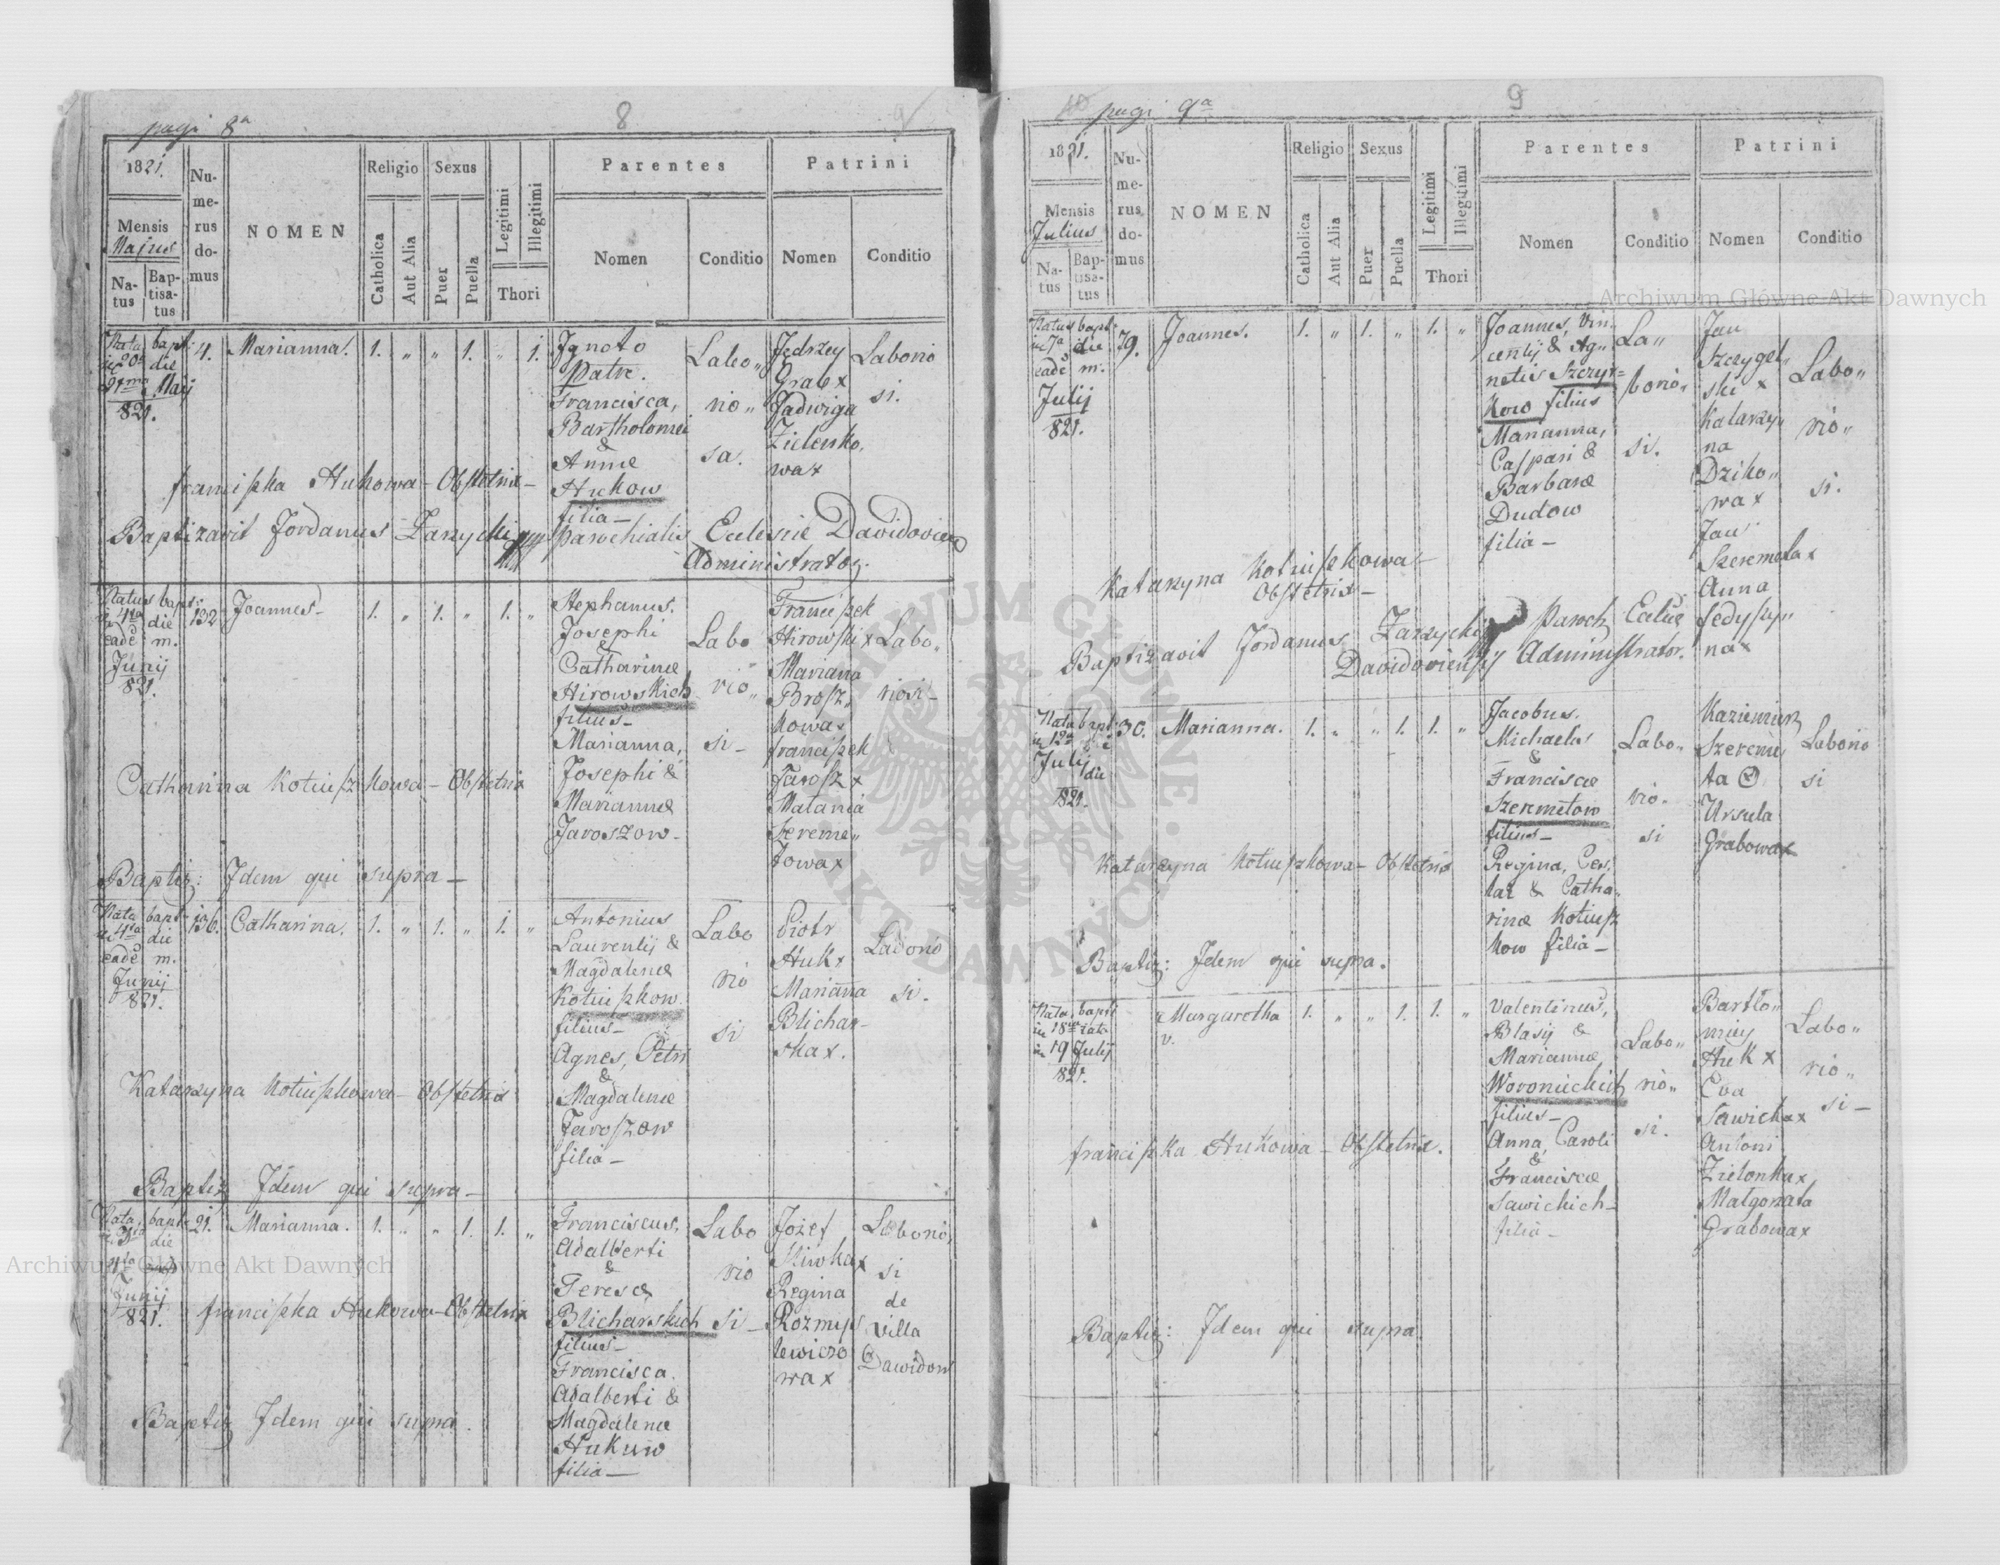 pagi 8ª
8
1821.
Mensis
Majus
Na-
tus
Bap-
tisa-
tus
Nu-
me-
rus
do-
mus
NOMEN
Religio
Catholica
Aut Alia
Sexus
Puer
Puella
Legitimi
Illegitimi
Thori
Parentes
Nomen
Conditio
Patrini
Nomen
Conditio
Nata bapt:
in 20ª die
21ma Maij
821.
4.
Marianna.
1. „ „ 1. „ 1.
Ignoto
Patre.
Francisca,
Bartholomei
&
Annæ
Hukow
filia—
Labo„
rio„
sa.
Jędrzey
Grab x
Jadwiga
Zielensko„
wa x
Laborio
si.
franciszka Hukowa – Obstetrix –
Baptizavit Jordanus Zarzycki parochialis Eclesiæ Davidovien
Administrator.
Natus bapt:
in 4ta die
eadē m.
Junij
821.
132
Joannes.
1. „ 1. „ 1. „
Stephanus.
Josephi
&
Catharinæ
Hirowskich
filius–
Marianna,
Josephi &
Mariannæ
Jaroszow–
Labo
rio„
si–
Franciszek
Hirowski x
Marianna
Brosz„
kowa x
franciszek
Jarosz x
Matania
Szereme„
towa x
Labo„
riosi–
Catharina Kotiuszkowa – Obstetrix
Baptiz: Idem qui supra –
Nata bapt:
in 4ta die
eadē m.
Junij
821.
136.
Catharina.
1. „ 1. „ 1. „
Antonius
Laurentij &
Magdalenæ
Kotiuszkow
filius–
Agnes, Petri
&
Magdalenæ
Jaroszow
filia–
Labo
rio
si
Piotr
Huk x
Marianna
Blichar–
ska x.
Laborio
si.
Katarzyna Kotiuszkowa – Obstetrix
Baptiz Idem qui supra –
Nata, bapt:
die
Junij
821.
21.
Marianna.
1. „ „ 1. 1. „
Franciscus,
Adalberti
&
Teresæ
Blicharskich
filius–
Francisca.
Adalberti &
Magdalenæ
Hukow
filia–
Labo
rio
si–
Jozef
Siwka x
Regina
Rozmys
lewiczo
wa x
Laborio,
si
de
Villa
Dawidow
franciszka Hukowa – Obstetrix
Baptiz Idem qui supra.
pagi 9ª
9
1821.
Mensis
Julius
Na-
tus
Bap-
tisa-
tus
Nu-
me-
rus
do-
mus
NOMEN
Religio
Catholica
Aut Alia
Sexus
Puer
Puella
Legitimi
Illegitimi
Thori
Parentes
Nomen
Conditio
Patrini
Nomen
Conditio
Natus bapt:
in 7ª die
eadē m.
Julij
821.
79.
Joannes.
1. „ 1. „ 1. „
Joannes, Vin„
centij & Ag„
netis Szczyr=
kow filius
Marianna,
Caspari &
Barbaræ
Dudow
filia–
La„
borio„
si.
Jan
Szczygel„
ski x
Katarzy„
na
Dziko„
wa x
Jan
Szeremeta x
Anna
fedyszy„
na x
Labo„
rio„
si.
Katarzyna Kotiuszkowa –
Obstetrix –
Baptizavit Jordanus Zarzycki Paroch Ecliæ
Davidoviensij Administrator.
Nata bapt:
in 12ª die
Julij
821.
30.
Marianna.
1. „ „ 1. 1. „
Jacobus.
Michaelis
&
Franciscæ
Szeremetow
filius–
Regina, Ces„
laz & Catha„
rinæ Kotiusz
kow filia–
Labo„
rio.
si
Kazimierz
Szereme
ta
Ursula
Grabowa x
Laborio
si
Katarzyna Kotiuszkowa – Obstetrix
Baptiz: Idem qui supra.
Nata, bapti
in 18
in 19 Julij
821.
Margaretha
v.
1. „ „ 1. 1. „
Valentinus,
Blasij &
Mariannæ
Woronieckich
filius–
Anna, Caroli
&
Franciscæ
Sawickich–
filia–
Labo„
rio„
si.
Bartło„
miey
Huk x
Eva
Sawicka x
Antoni
Zielonka x
Małgorzata
Grabowa x
Labo„
rio„
si–
franciszka Hukowa – Obstetrix.
Baptiz: Idem qui supra
Archiwum Główne Akt Dawnych
Archiwum Główne Akt Dawnych
ARCHIWUM GŁÓWNE · AKT DAWNYCH ·